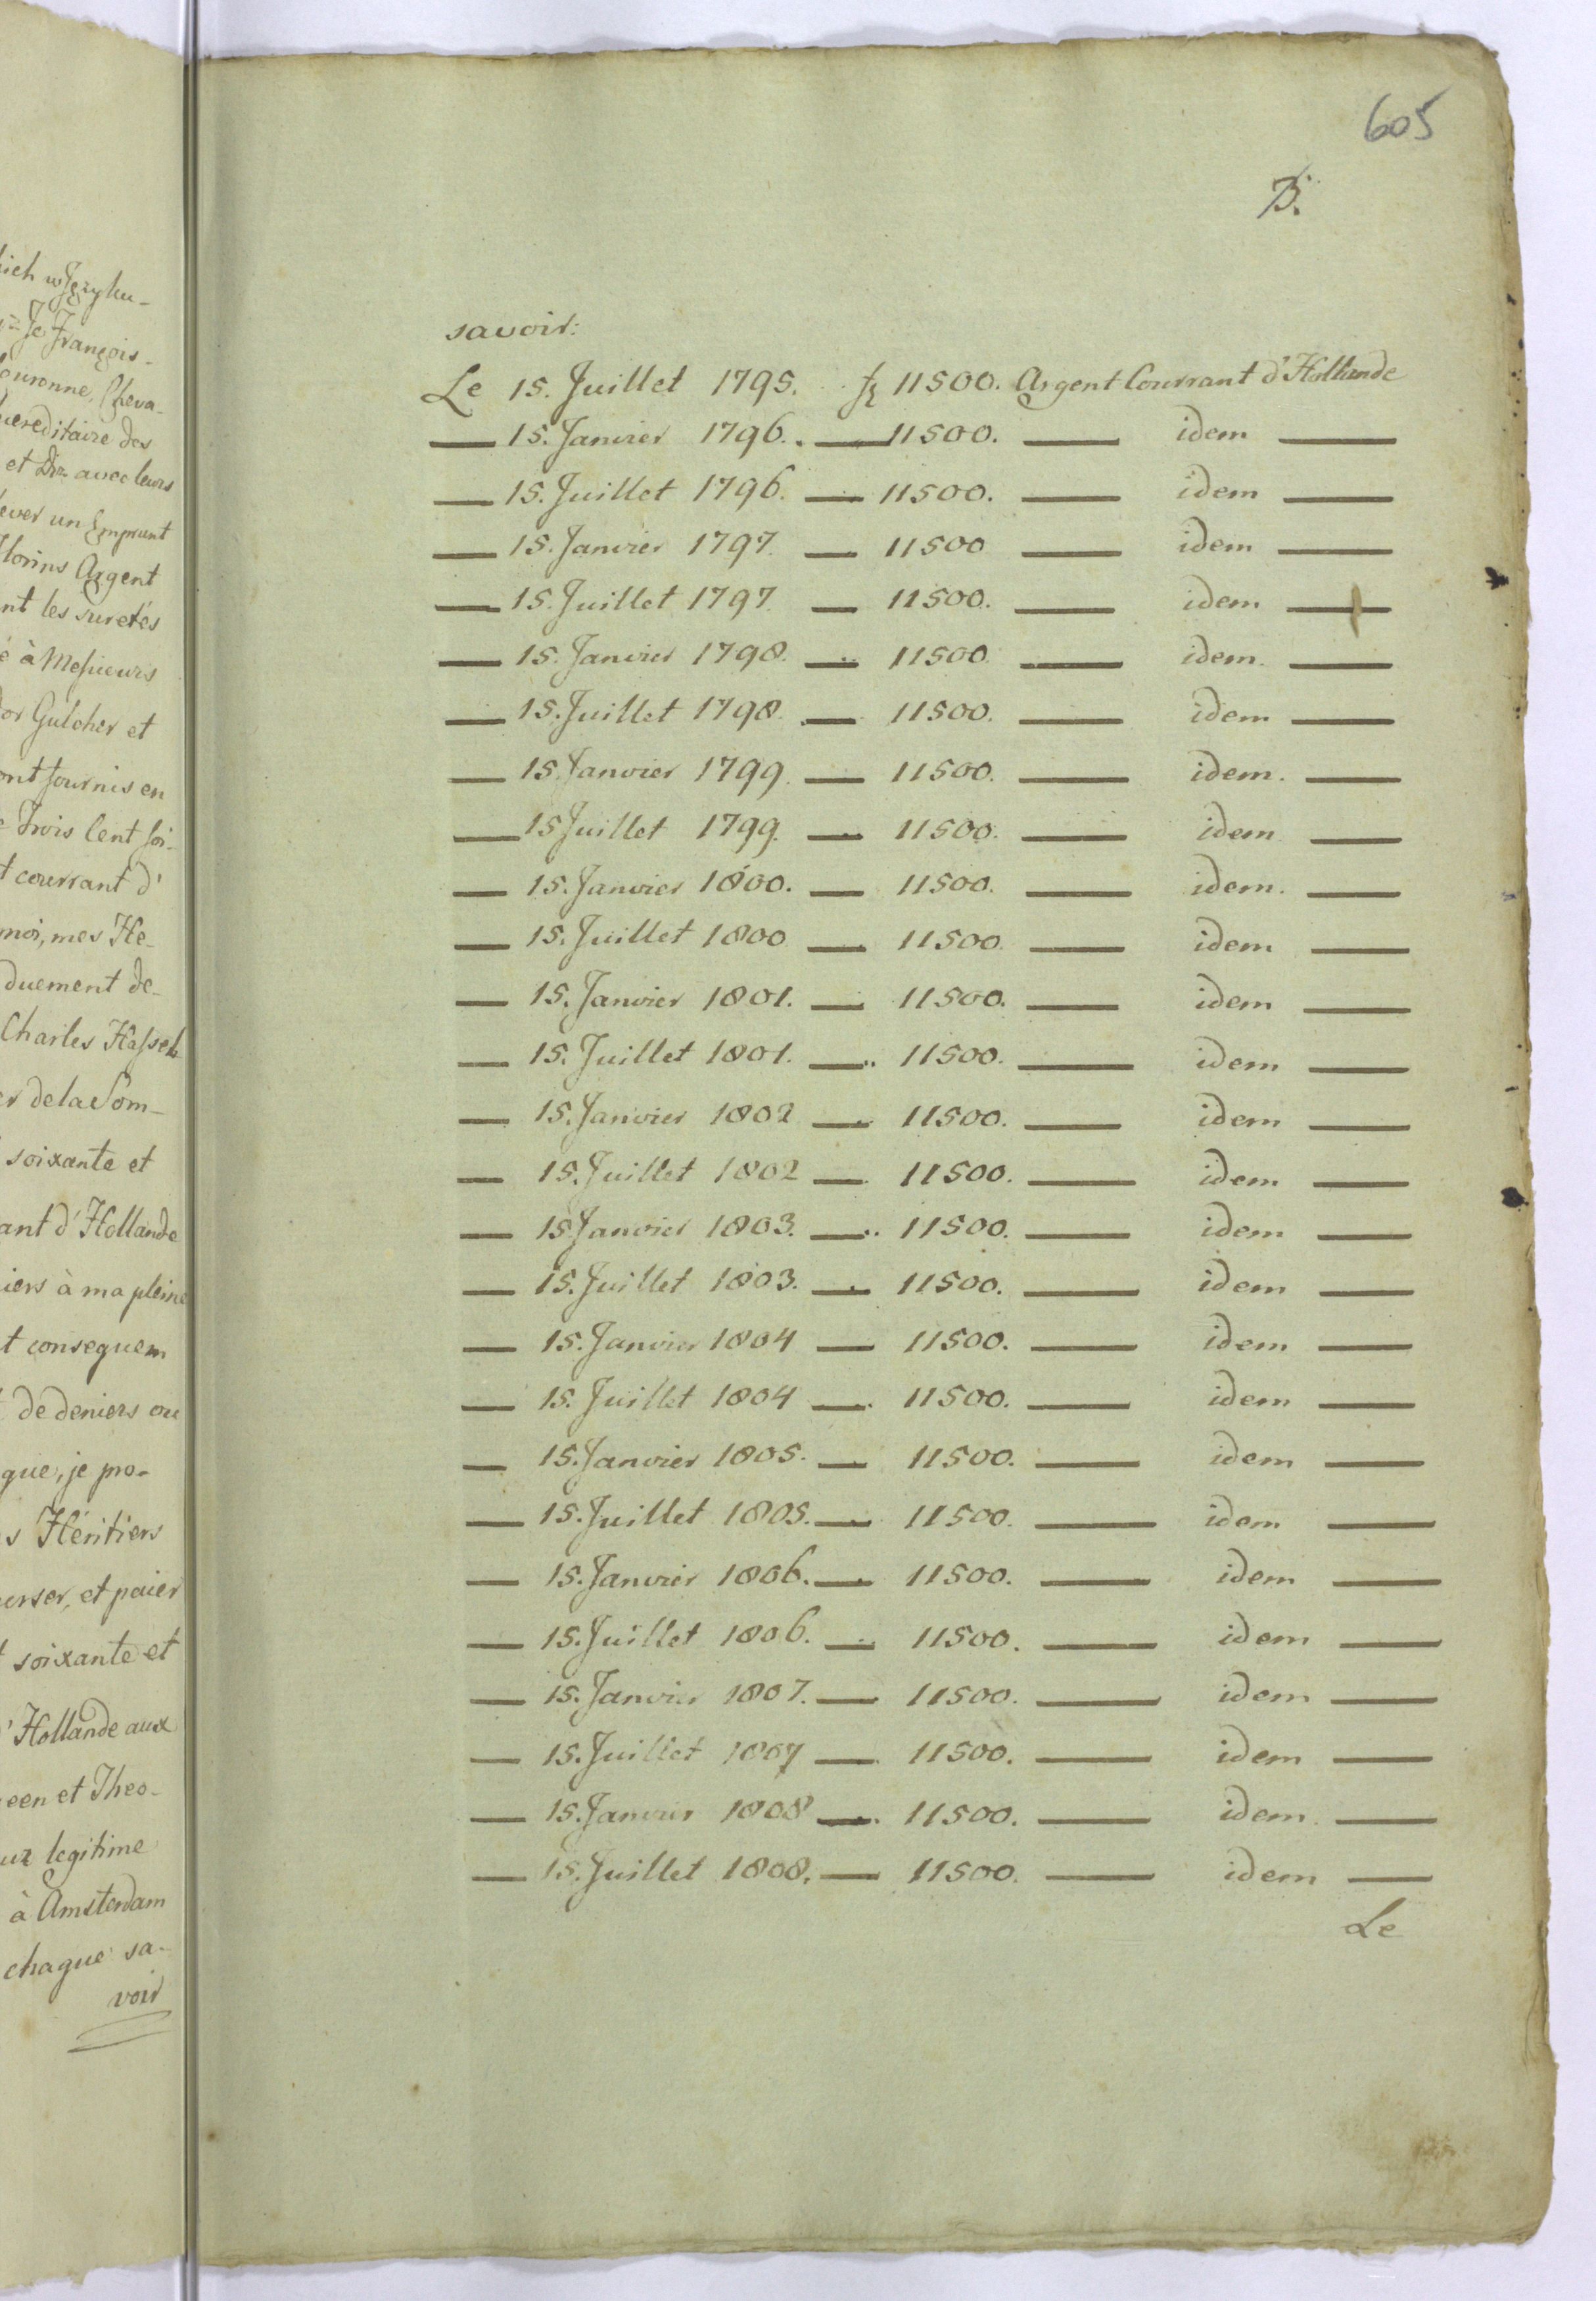 ich w Języku-
Je François-
ouronne, Cheva-
hereditaire des
et Dix avec leurs
lever un Emprunt
florins Argent
nt les suretés
é à Messieurs
or Gulcher et
ont fournis en
Trois Cent soi-
t courrant d'
moi, mes He-
duement de-
Charles Hassel
er de la Som-
soixante et
ant d'Hollande
iers à ma pleine
t consequem
de deniers ou
que, je pro-
s Héritiers
erser, et paier
soixante et
d'Hollande aux
een et Theo-
legitime
à Amsterdam
chaque sa-
voir
605
B.
savoir:
Le 15. Juillet 1795. f 11500. Argent Courrant d'Hollande
— 15. Janvier 1796. — 11500. — idem —
— 15. Juillet 1796. — 11500. — idem —
— 15. Janvier 1797. — 11500 — idem —
— 15. Juillet 1797. — 11500. — idem —
— 15. Janvier 1798. — 11500 — idem. —
— 15. Juillet 1798. — 11500. — idem —
— 15 Janvier 1799. — 11500. — idem. —
— 15 Juillet 1799. — 11500. — idem —
— 15. Janvier 1800. — 11500. — idem. —
— 15. Juillet 1800 — 11500. — idem —
— 15. Janvier 1801. — 11500. — idem —
— 15. Juillet 1801. — 11500. — idem —
— 15. Janvier 1802 — 11500. — idem —
— 15. Juillet 1802 — 11500. — idem —
— 15 Janvier 1803. — 11500. — idem —
— 15. Juillet 1803. — 11500. — idem —
— 15. Janvier 1804 — 11500. — idem —
— 15. Juillet 1804 — 11500. — idem —
— 15. Janvier 1805. — 11500. — idem —
— 15. Juillet 1805. — 11500. — idem —
— 15. Janvier 1806. — 11500. — idem —
— 15. Juillet 1806. — 11500. — idem —
— 15. Janvier 1807. — 11500. — idem —
— 15. Juillet 1807 — 11500. — idem —
— 15. Janvier 1808 — 11500. — idem. —
— 15. Juillet 1808. — 11500. — idem —
Le